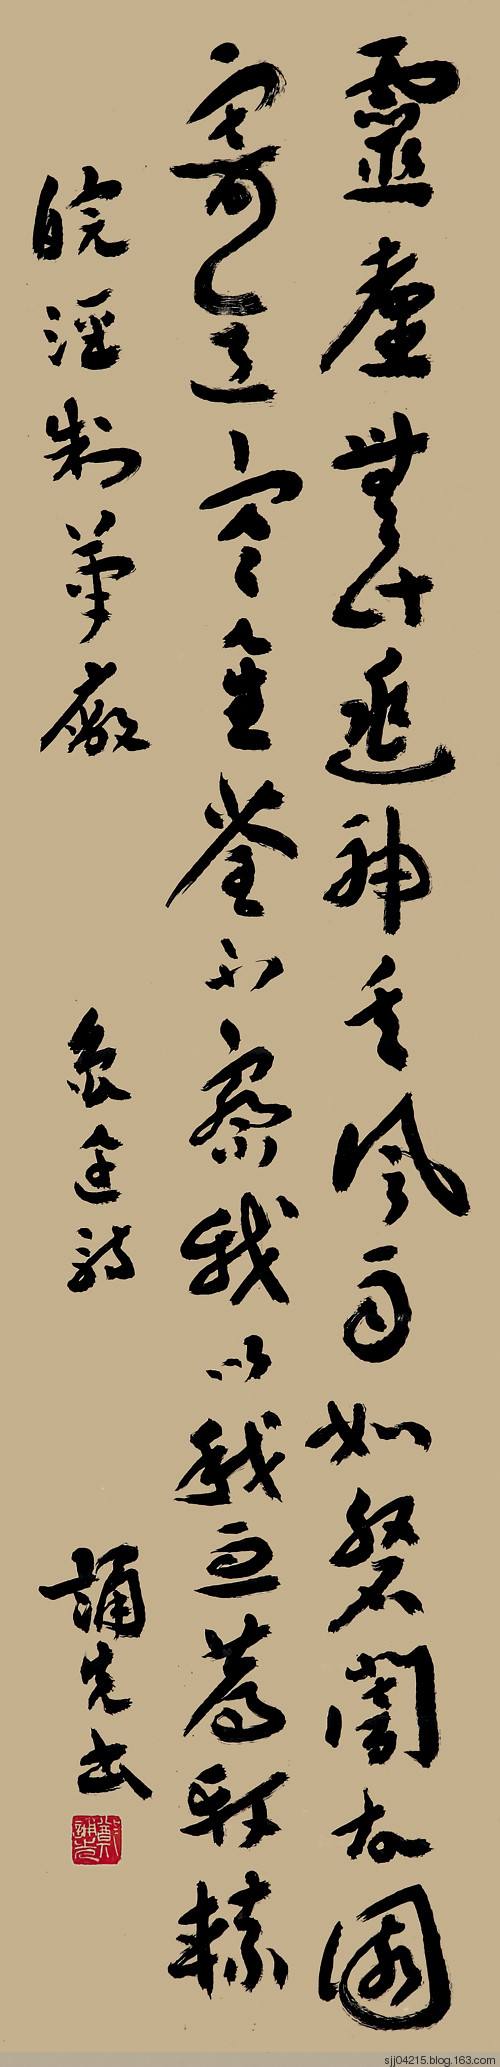 靈臺無計逃神矢風雨如磐闇故園
寄意寒星荃不察我以我血薦軒轅
皖涇制筆廠 魯迅詩 誦先书
鄭誦先
sjj04215.blog.163.com